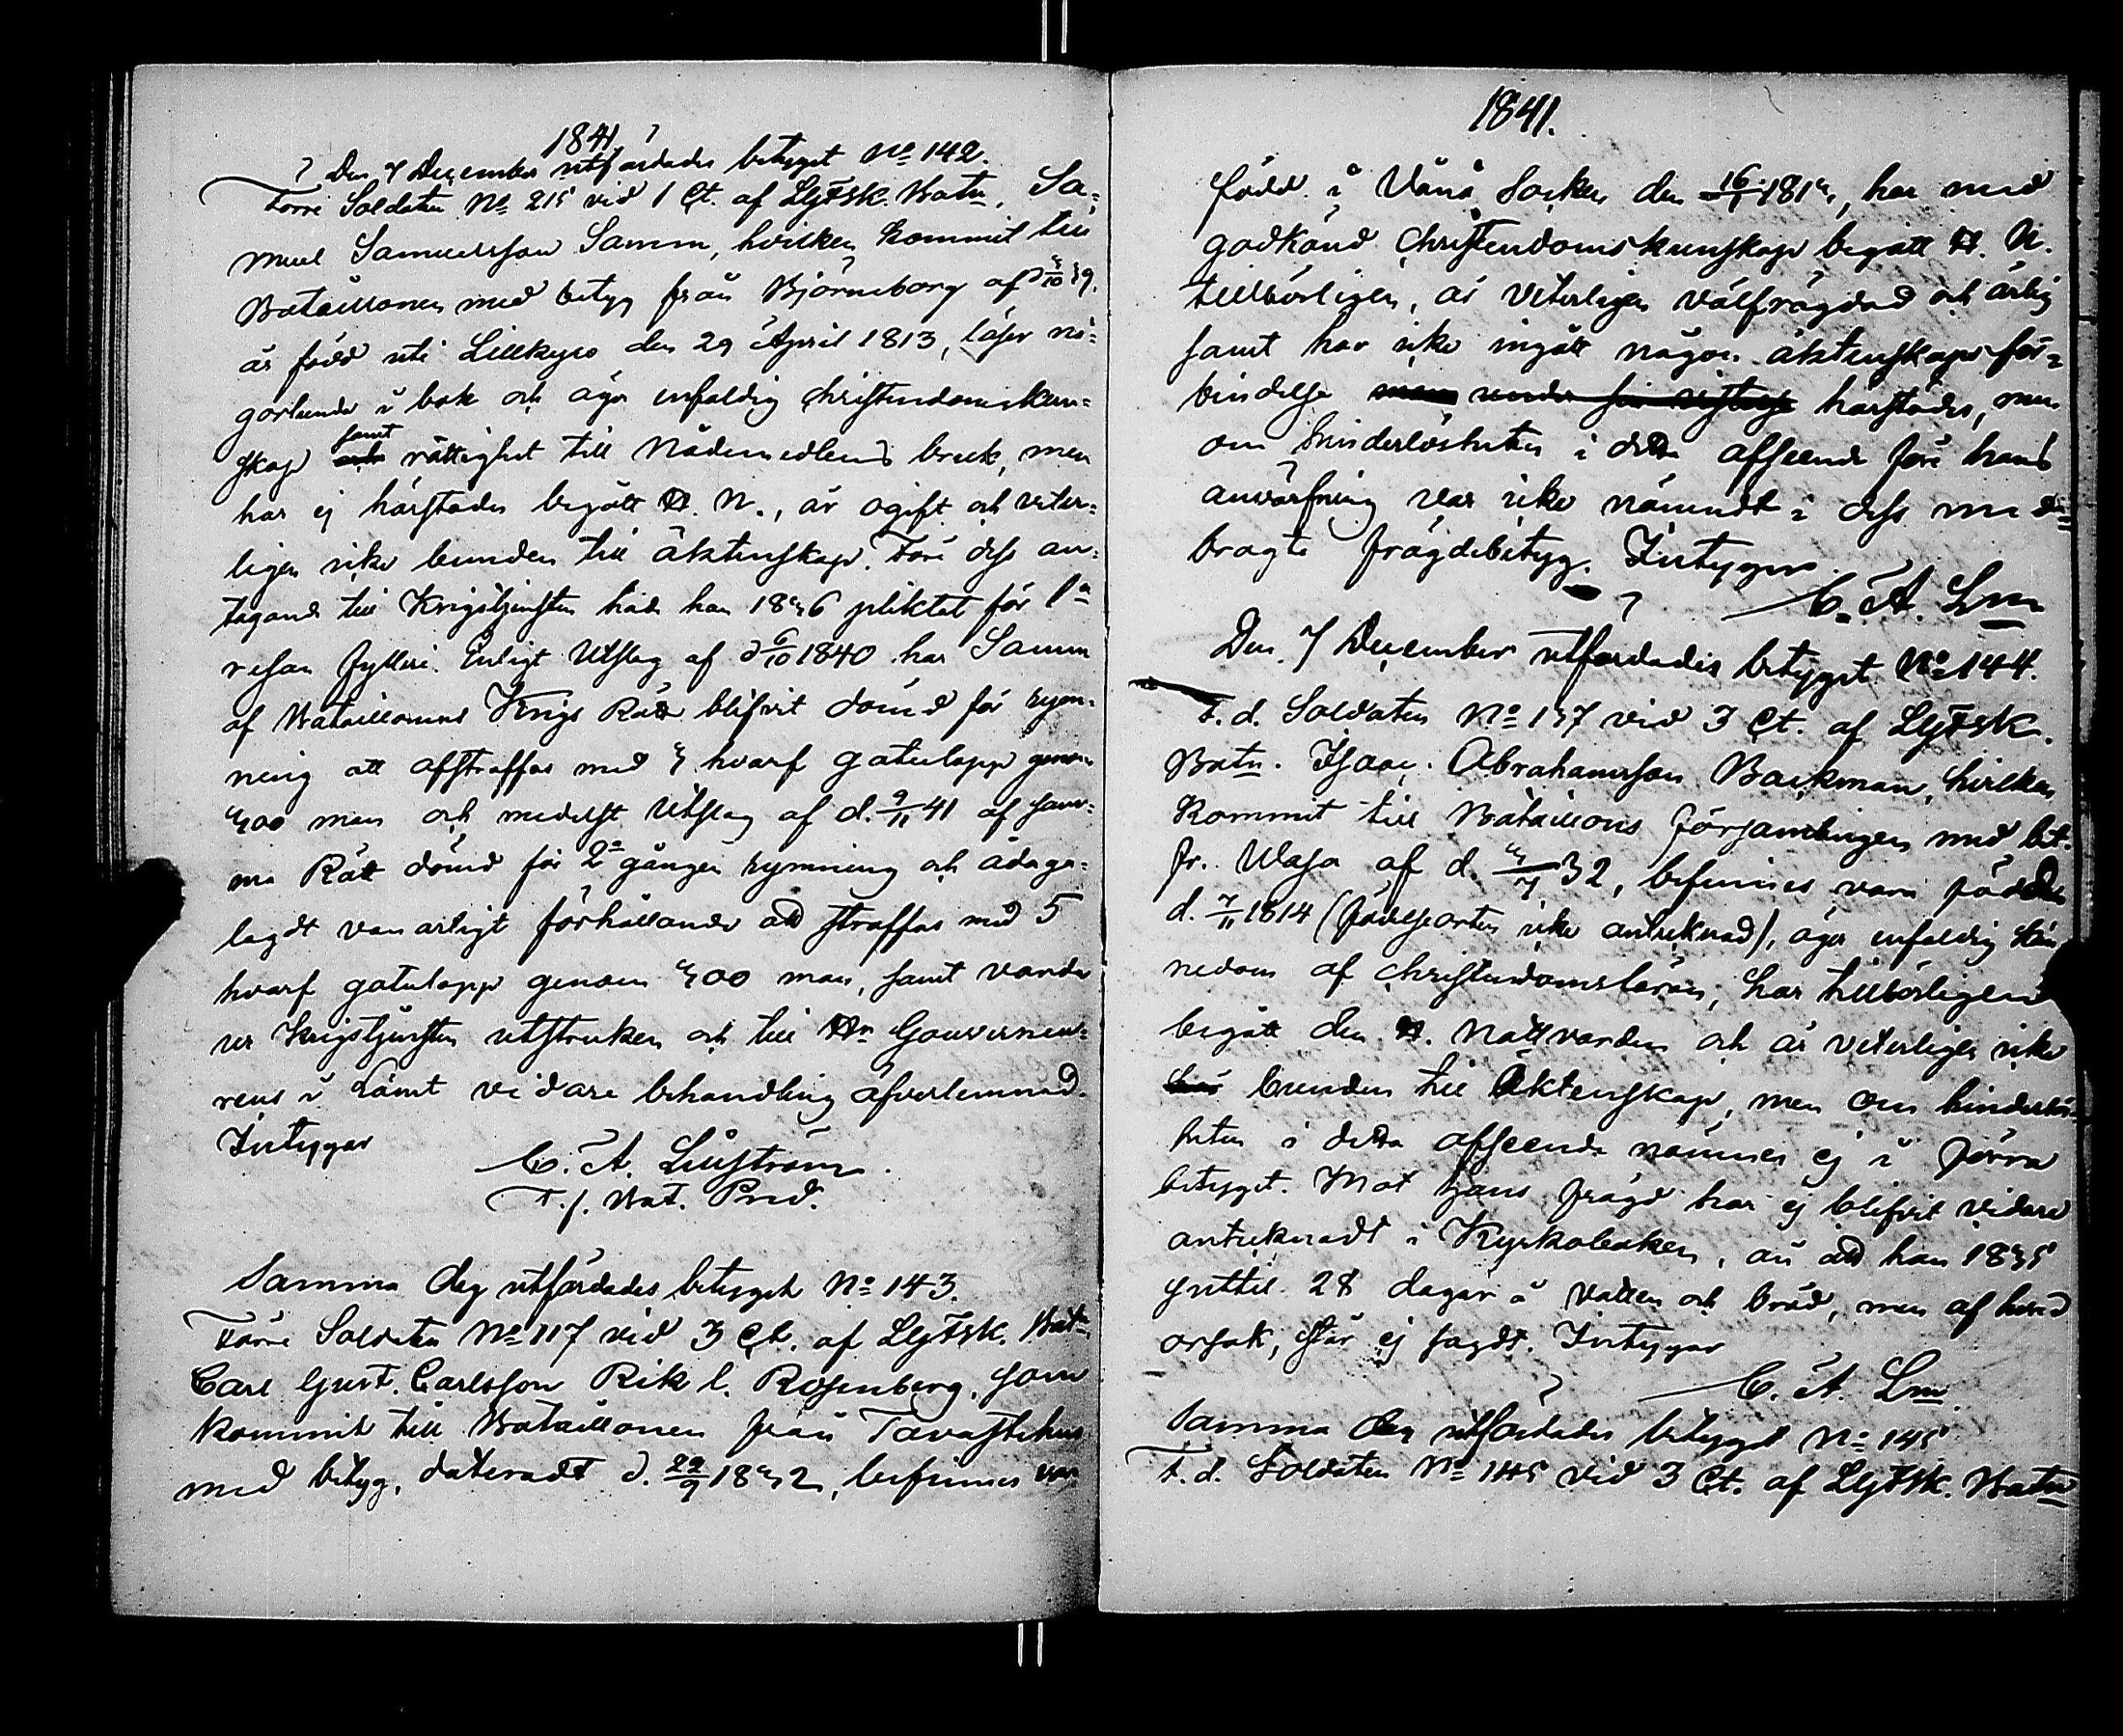 1841
Den 7 December utfärdades betyget No 142.
Förre Soldaten No 215 vid 1 Ct. af LgFsk. Batn. Sa=
muel Samuelsson Samm, hvilken kommit till
Bataillonen med betyg från Björneborg af d 3/10 39,
är född uti Lillkyro den 29 April 1813, läser nå=
gorlunda i bok och äger enfaldig christendomskun=
skap samt rättighet till Nådemedlens bruk, men
har ej härstädes begått H. N., är ogift och veter=
ligen icke bunden till äktenskap. Före dess an=
tagande till Krigstjensten hade han 1836 pliktat för 1a
resan fylleri. Enligt Utslag af d 6/10 1840 har Samm
af Bataillonens Krigs Rätt blifvit dömd för rym=
ning att afstraffas med 3 hvarf gatulopp genom
300 man och medelst Utslag af d. 9/11 41 af sam=
ma Rätt dömd för 2a gången rymning och ådaga=
lagdt vanartigt förhållande att straffas med 5
hvarf gatulopp genom 300 man, samt varda
ur Krigstjensten utstruken och till Hr Gouverneu=
rens i Länet vidare behandling öfverlemnad.
Intygar
C. A. Liliström
T. f. Bat. Pred.
Samma dag utfärdades betyget No 143.
Förre Soldaten No 117 vid 3 Ct. af LgFsk. Batn
Carl Gust. Carlsson Rik l. Rosenberg, som
kommit till Bataillonen från Tavastehus
med betyg, dateradt d. 22/9 1832, befinnes vara
1841.
född i Vånå Socken den 16/1 1813, har med
godkänd Christendomskunskap begått H. N.
tillbörligen, är veterligen välfrägdad och ärlig
samt har icke ingått någon äktenskapsför=
bindelse men under sin vistelse härstädes, men
om hinderlösheten i detta afseende före hans
anvärfning var icke nämndt i dess med=
bragte frägdebetyg. Intygar
C. A. Lm
Den 7 December utfärdades betyget No 144.
F. d. Soldaten No 137 vid 3 Ct. af LgFsk.
Batn. Isaac Abrahamsson Backman, hvilken
kommit till Bataillons församlingen med bet.
fr. Wasa af d. 3/7 32, befinnes vara född
d. 7/11 1814 (födelseorten icke antecknad), äger enfaldig kän=
nedom af Christendomsläran, har tillbörligen
begått den H. Nattvarden och är veterligen icke
bunden till Äktenskap, men om hinderlös=
heten i detta afseende nämnes ej i förra
betyget. Mot hans frägd har ej blifvit vidare
antecknadt i Kyrkoboken, än att han 1835
suttit 28 dagar å vatten och bröd, men af hvad
orsak, står ej sagdt. Intygar
C. A. Lm
Samma dag utfärdades betyget No 145
F. d. Soldaten No 145 vid 3 Ct. af LgFsk. Batn